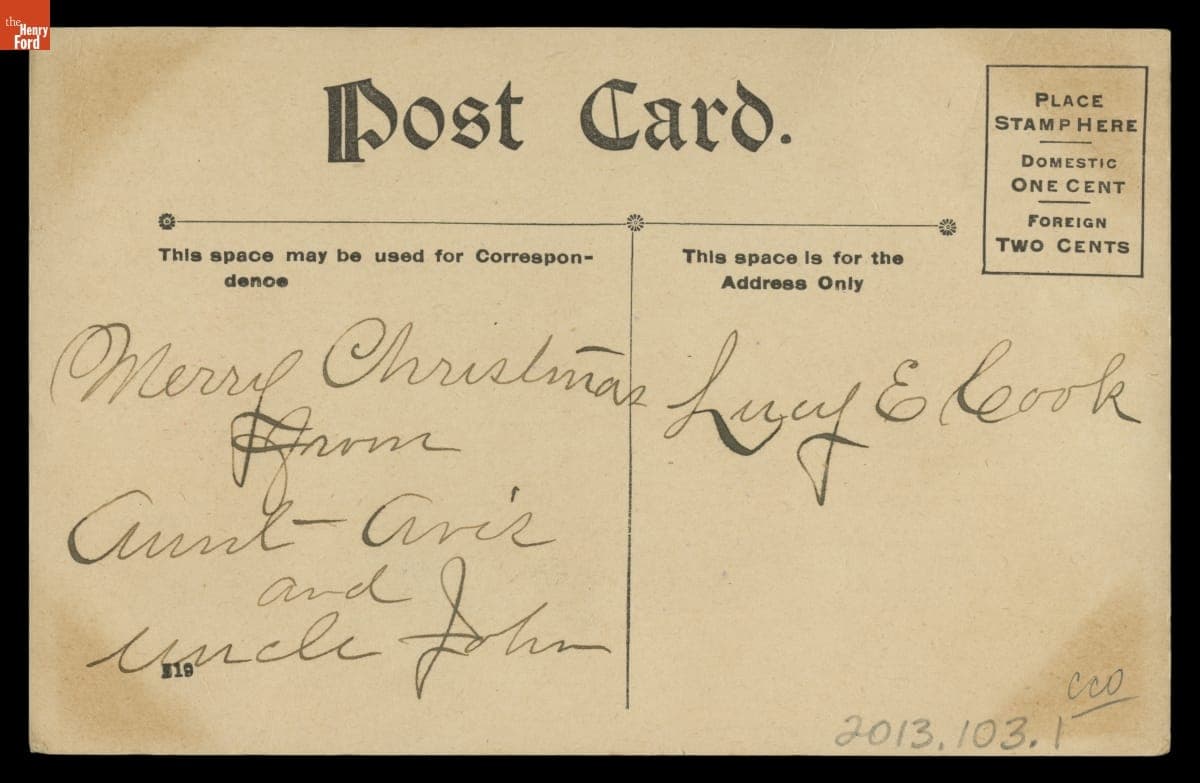 the
Henry
Ford
Post Card.
PLACE
STAMP HERE
DOMESTIC
ONE CENT
FOREIGN
TWO CENTS
This space may be used for Correspon-
dence
This space is for the
Address Only
Merry Christmas
From
Aunt Avis
and
Uncle John
Lucy E Cook
519
CCO
2013.103.1